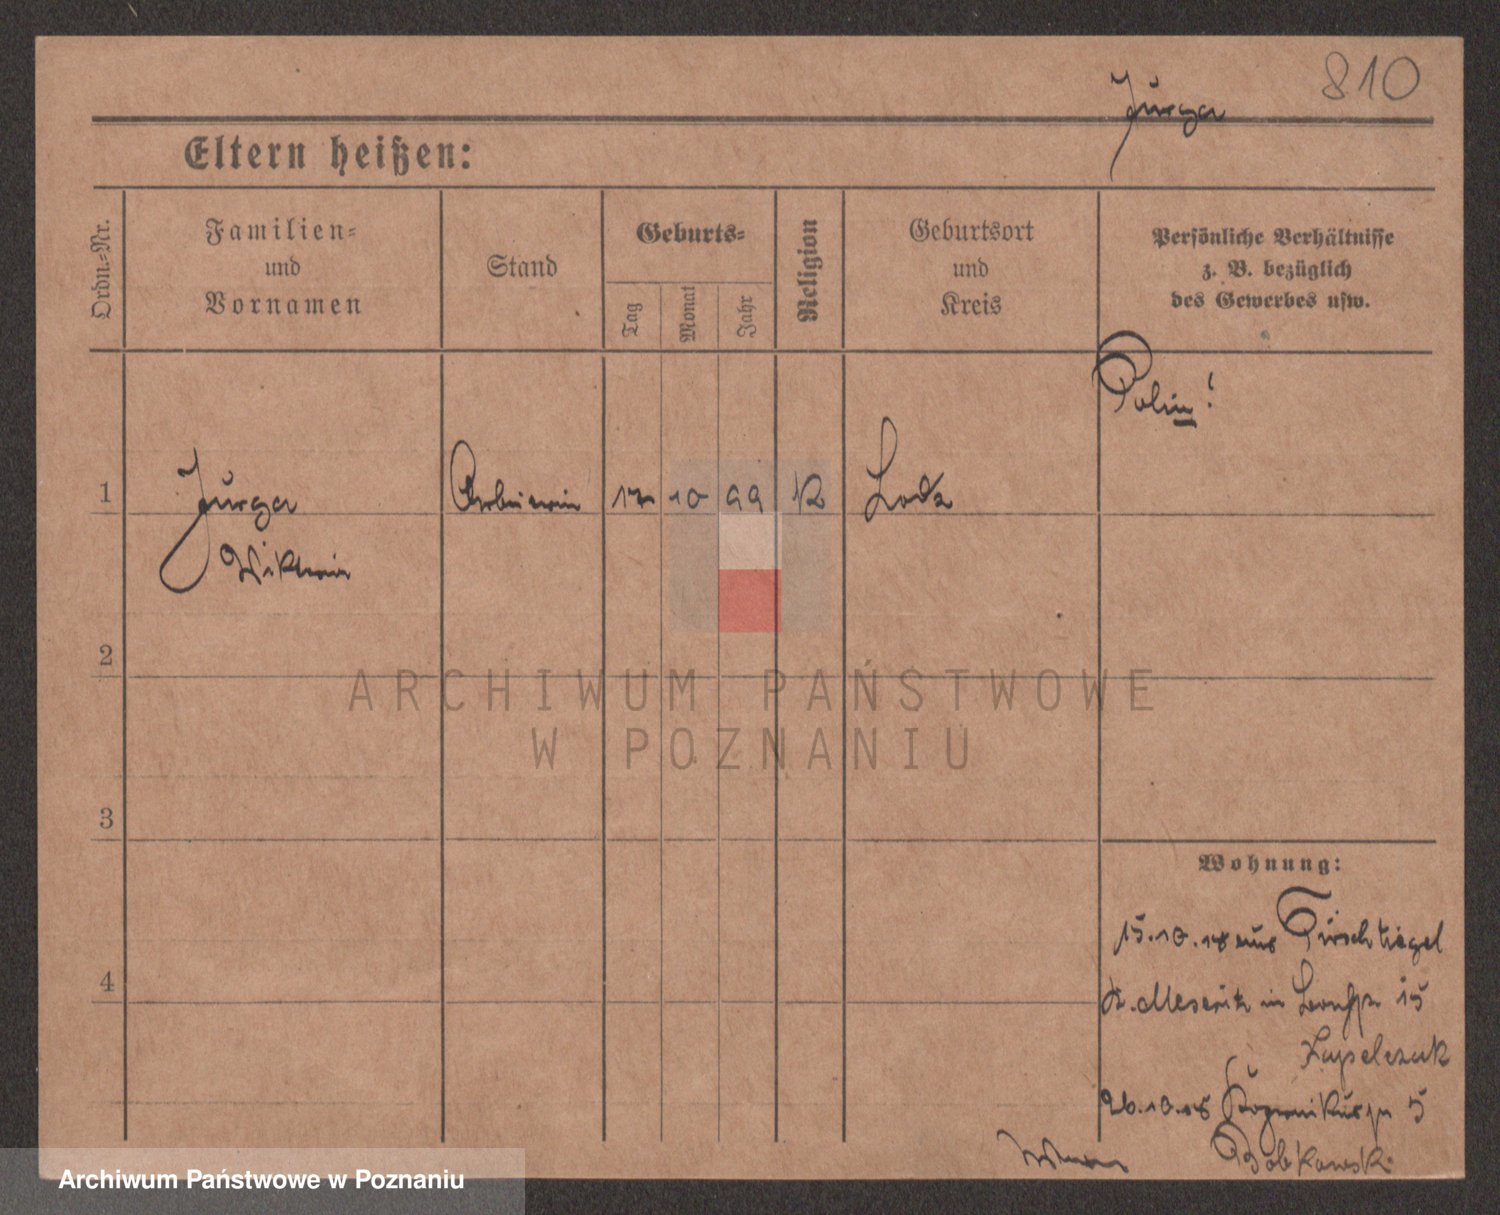 810
Jurga
Eltern heißen:
Ordn.-Nr.
Familien-
und
Vornamen
Stand
Geburts-
Tag
Monat
Jahr
Religion
Geburtsort
und
Kreis
Persönliche Verhältnisse
z. B. bezüglich
des Gewerbes usw.
Polin!
1 Jurga Arbeiterin 17 10 99 K Lodz
Wiktoria
2
ARCHIWUM PAŃSTWOWE
W POZNANIU
3
Wohnung:
15.10.18 aus Tirschtiegel
4
Kr. Meseritz in 15
Kapelczak
26.10.18 5
Bobkowski
Archiwum Państwowe w Poznaniu